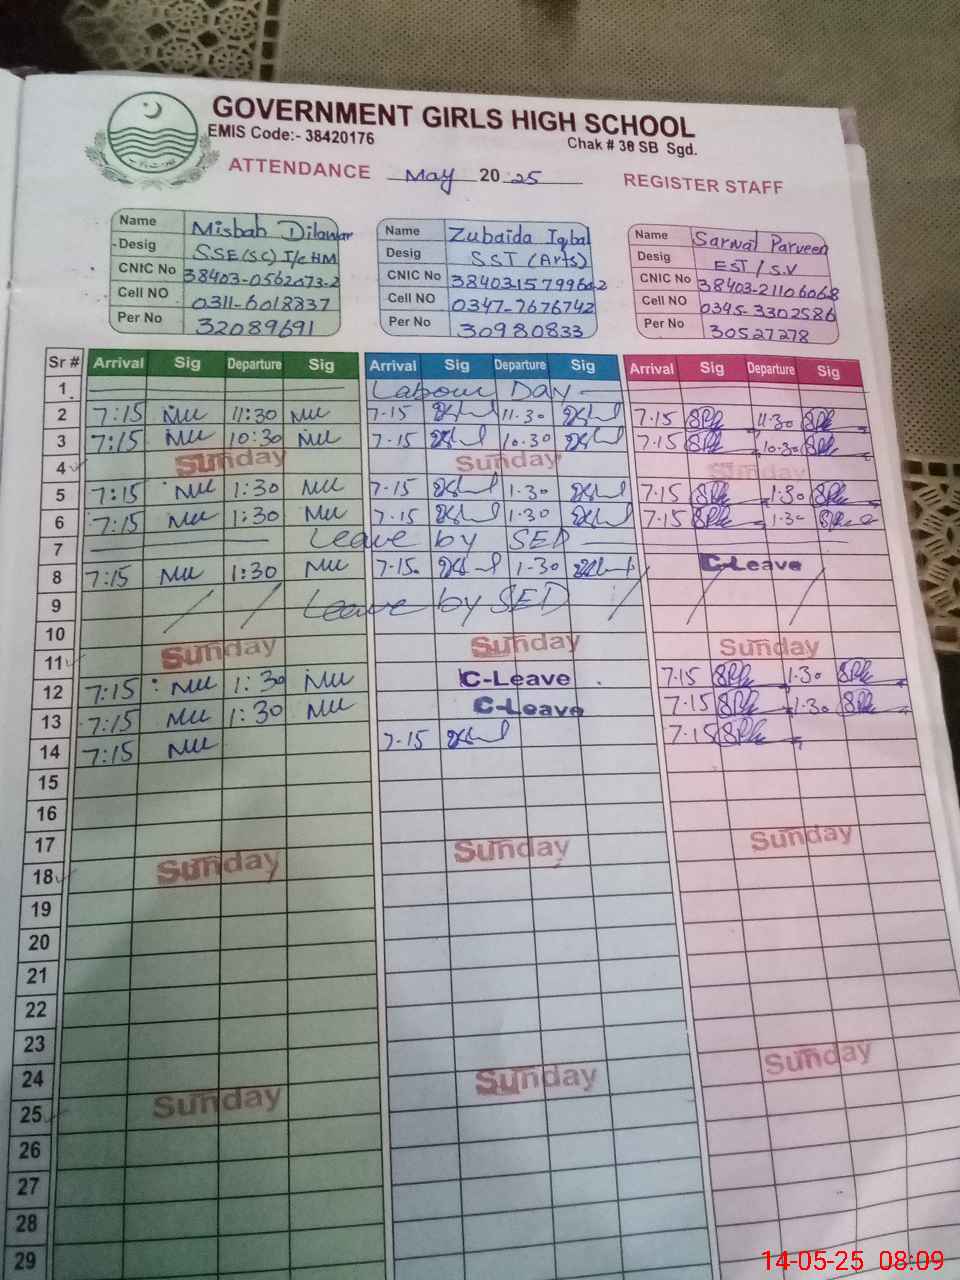 GOVERNMENT GIRLS HIGH SCHOOL
EMIS Code:- 38420176
Chak # 38 SB Sgd.
ATTENDANCE May 2025 REGISTER STAFF
Name Misbah Dilawar
Desig SSE(SC) I/c HM
CNIC No 38403-0562073-2
Cell NO 0311-6018837
Per No 32089691
Name Zubaida Iqbal
Desig SST (Arts)
CNIC No
Cell NO 0347-7676742
Per No 30980833
Name Parveen
Desig EST / S.V
CNIC No 38403-21106068
Cell NO 0345-3302586
Per No 30527278
Sr # Arrival Sig Departure Sig Arrival Sig Departure Sig Arrival Sig Departure Sig
1 Labour DAY
2 7:15 MU 11:30 MU 7-15 11-30 7-15 11-30
3 7:15 MU 10:30 MU 7-15 10-30 7-15 10-30
4 Sunday Sunday Sunday
5 7:15 MU 1:30 MU 7-15 1-30 7-15 1-30
6 7:15 MU 1:30 MU 7-15 1-30 7-15 1-30
7 Leave by SED
8 7:15 MU 1:30 MU 7-15 1-30 C-Leave
9 Leave by SED
10
11 Sunday Sunday Sunday
12 7:15 MU 1:30 MU C-Leave 7-15 1-30
13 7:15 MU 1:30 MU C-Leave 7-15 1-30
14 7:15 MU 7-15 7-15
15
16
17
18 Sunday Sunday Sunday
19
20
21
22
23
24
25 Sunday Sunday Sunday
26
27
28
29
14-05-25 08:09